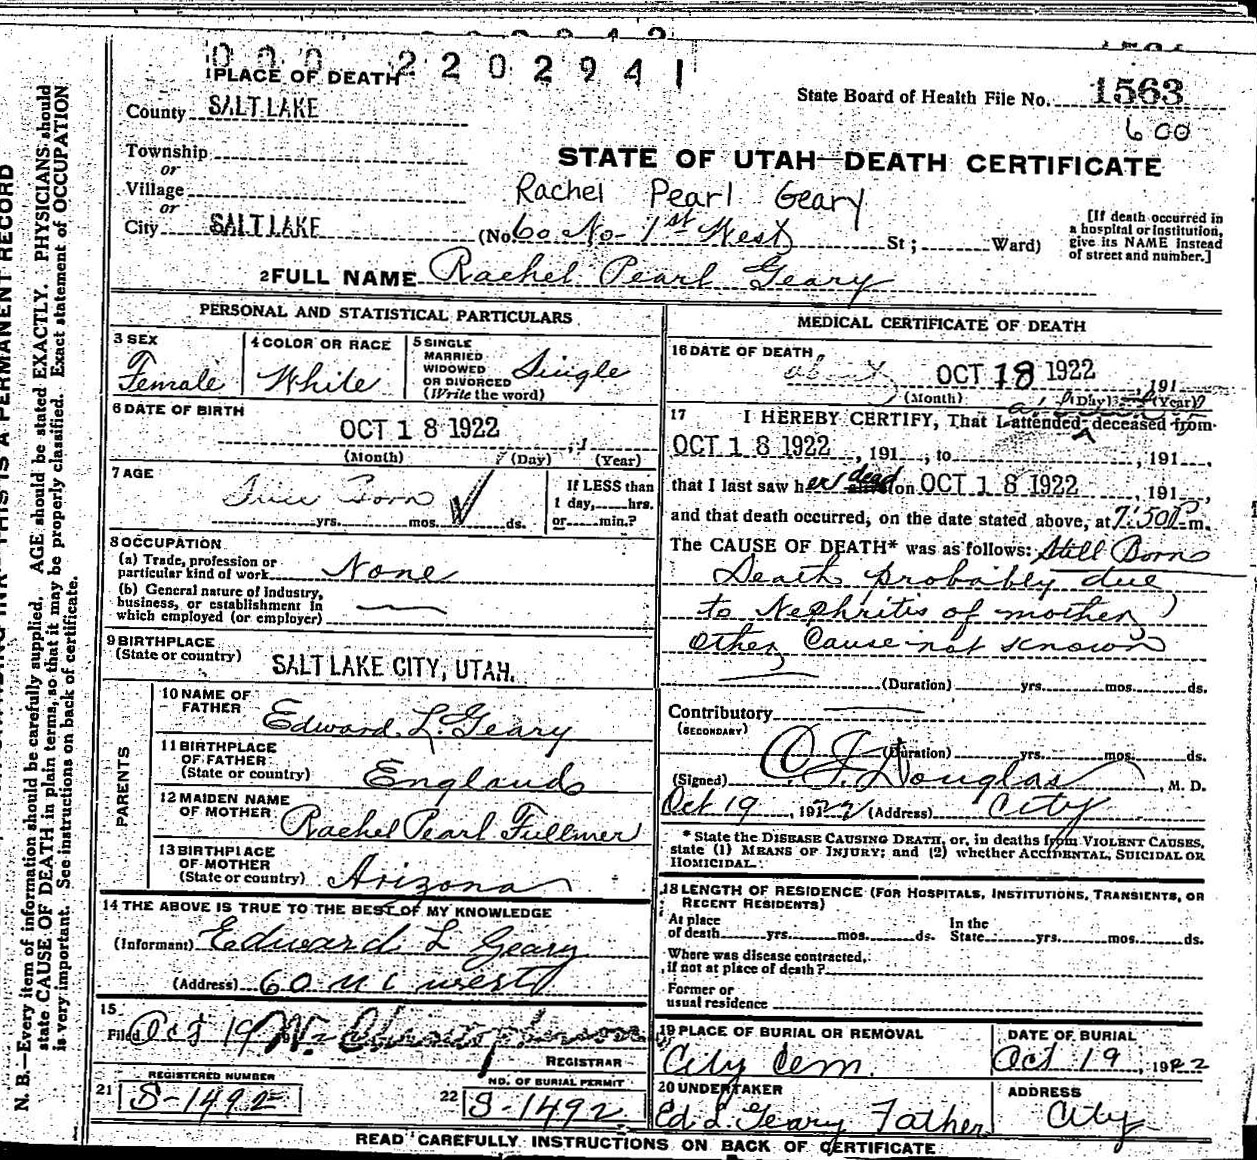 0 0 0 2 2 0 2 9 4 1
1 PLACE OF DEATH
County SALT LAKE
Township
or
Village
or
City SALT LAKE
State Board of Health File No. 1563
600
STATE OF UTAH—DEATH CERTIFICATE
Rachel Pearl Geary
(No. 60 No- 1st West St; Ward)
[If death occurred in
a hospital or institution,
give its NAME instead
of street and number.]
2 FULL NAME Rachel Pearl Geary
PERSONAL AND STATISTICAL PARTICULARS
3 SEX
Female
4 COLOR OR RACE
White
5 SINGLE
MARRIED
WIDOWED
OR DIVORCED
(Write the word)
Single
6 DATE OF BIRTH
OCT 18 1922
(Month) (Day) (Year)
7 AGE
Born
yrs. mos. ds.
If LESS than
1 day, hrs.
or min.?
8 OCCUPATION
(a) Trade, profession or
particular kind of work None
(b) General nature of industry,
business, or establishment in
which employed (or employer)
9 BIRTHPLACE
(State or country)
SALT LAKE CITY, UTAH.
PARENTS
10 NAME OF
FATHER
Edward L. Geary
11 BIRTHPLACE
OF FATHER
(State or country)
England
12 MAIDEN NAME
OF MOTHER
Rachel Pearl Fullmer
13 BIRTHPLACE
OF MOTHER
(State or country)
Arizona
14 THE ABOVE IS TRUE TO THE BEST OF MY KNOWLEDGE
(Informant) Edward L Geary
(Address) 60 n 1 west
15
Filed Oct 19
REGISTRAR
REGISTERED NUMBER
21 S-1492
NO. OF BURIAL PERMIT
22 S-1492
MEDICAL CERTIFICATE OF DEATH
16 DATE OF DEATH
about OCT 18 1922, 191
(Month) (Day) (Year)
17 I HEREBY CERTIFY, That I attended deceased from
OCT 18 1922, 191, to , 191,
that I last saw her dead alive on OCT 18 1922, 191,
and that death occurred, on the date stated above, at 7:50 P m.
The CAUSE OF DEATH* was as follows: Still Born
Death probably due
to Nephritis of mother
other cause not known
(Duration) yrs. mos. ds.
Contributory
(SECONDARY)
(Duration) yrs. mos. ds.
(Signed) C. F. Douglas, M. D.
Oct 19, 1922 (Address) City
* State the DISEASE CAUSING DEATH, or, in deaths from VIOLENT CAUSES,
state (1) MEANS OF INJURY; and (2) whether ACCIDENTAL, SUICIDAL OR
HOMICIDAL.
18 LENGTH OF RESIDENCE (FOR HOSPITALS, INSTITUTIONS, TRANSIENTS, OR
RECENT RESIDENTS)
At place
of death yrs. mos. ds.
In the
State yrs. mos. ds.
Where was disease contracted,
if not at place of death?
Former or
usual residence
19 PLACE OF BURIAL OR REMOVAL
City Cem.
DATE OF BURIAL
Oct 19, 1922
20 UNDERTAKER
Ed L. Geary Father
ADDRESS
City
READ CAREFULLY INSTRUCTIONS ON BACK OF CERTIFICATE
THIS IS A PERMANENT RECORD
N. B.—Every item of information should be carefully supplied. AGE should be stated EXACTLY. PHYSICIANS should
state CAUSE OF DEATH in plain terms, so that it may be properly classified. Exact statement of OCCUPATION
is very important. See instructions on back of certificate.